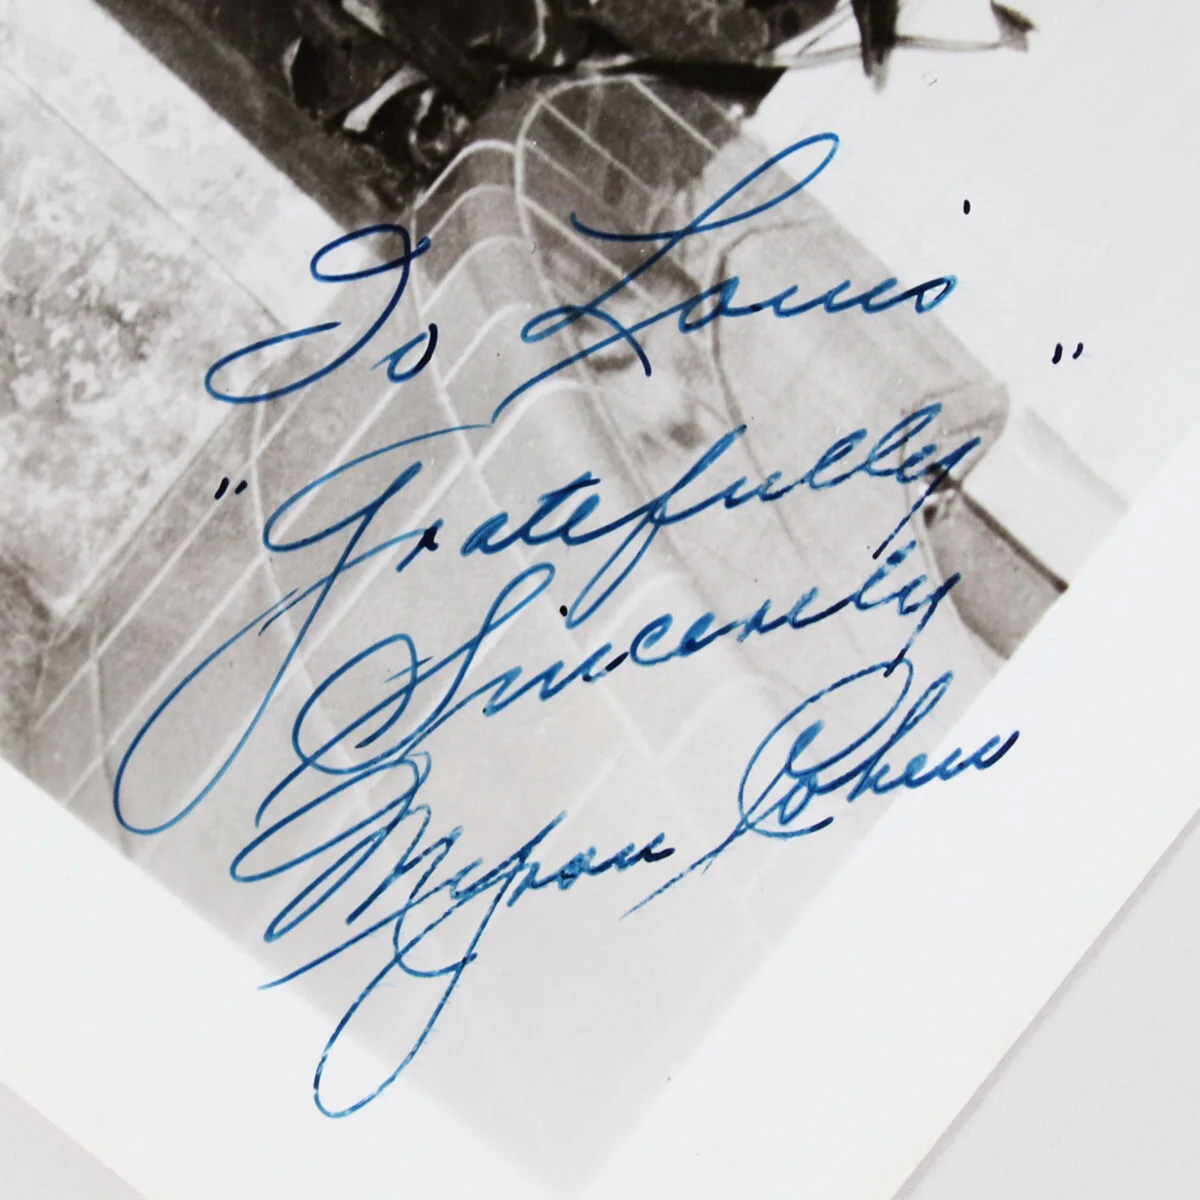 To Louis
"Gratefully"
Sincerely
Myron Cohen